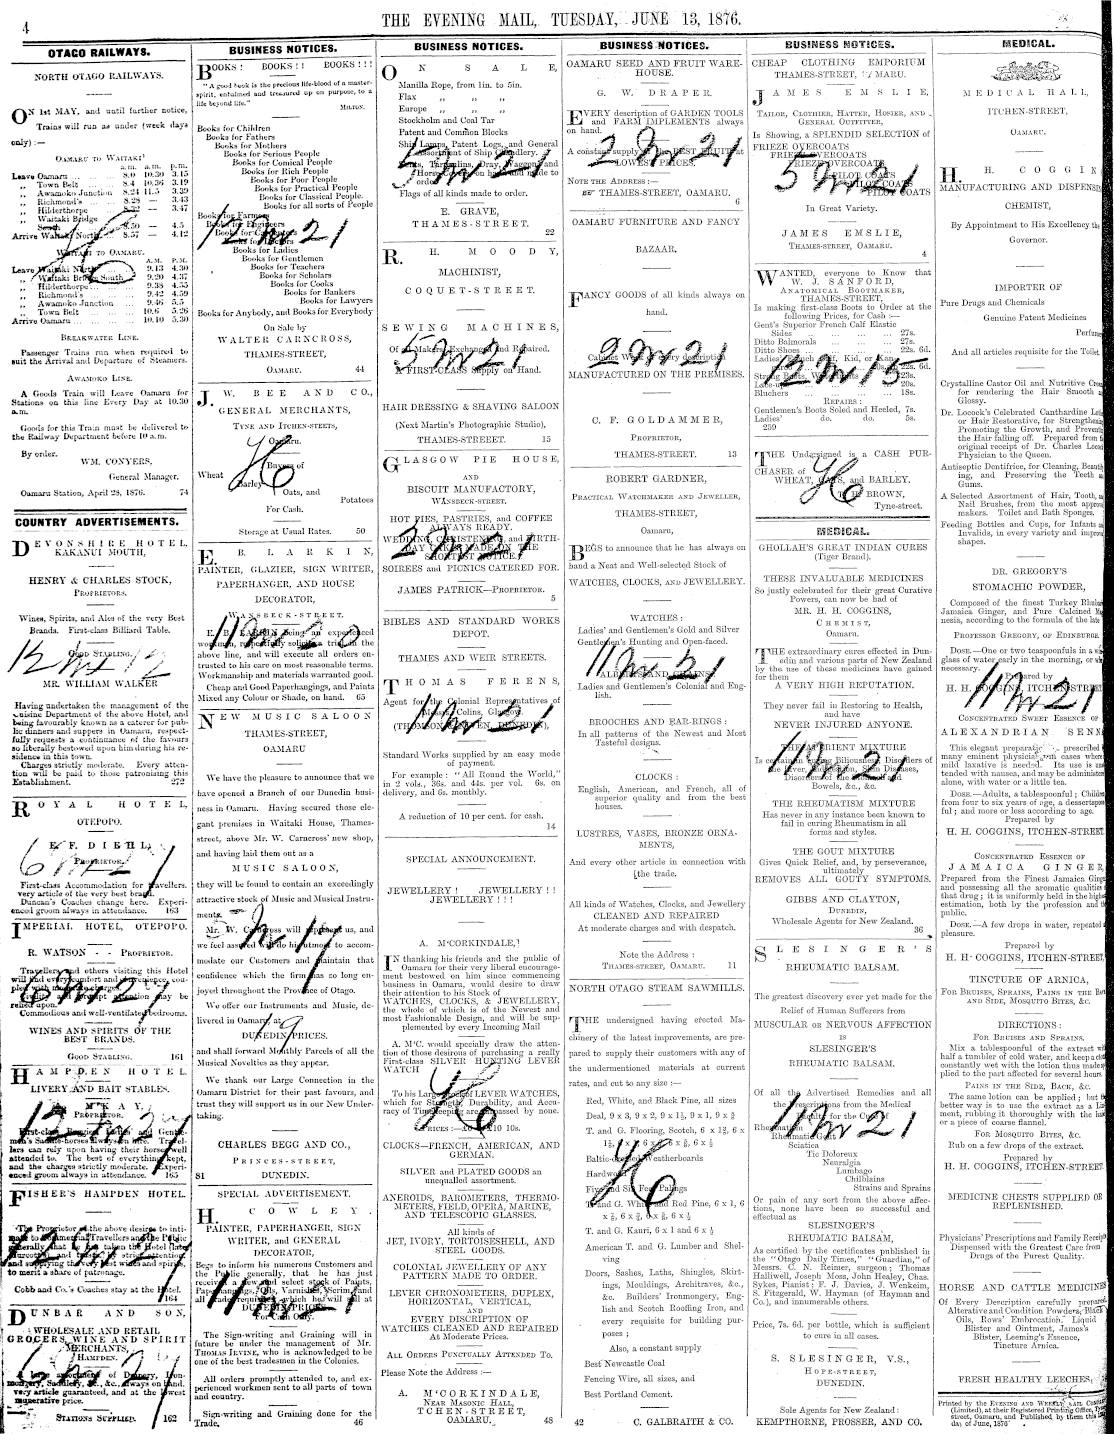 4
THE EVENING MAIL, TUESDAY, JUNE 13, 1876.
OTAGO RAILWAYS.
NORTH OTAGO RAILWAYS.
ON 1st MAY, and until further notice,
Trains will run as under (week days
only) :—
OAMARU TO WAITAKI
a.m. a.m. p.m.
Leave Oamaru ... 8.0 10.30 3.15
„ Town Belt ... 8.4 10.36 3.19
„ Awamoko Junction 8.24 11.5 3.39
„ Richmond's ... 8.28 — 3.43
„ Hilderthorpe ... — 3.47
„ Waitaki Bridge
South 8.50 — 4.5
Arrive Waitaki North 8.57 — 4.12
WAITAKI TO OAMARU.
A.M. P.M.
Leave Waitaki North ... 9.13 4.30
„ Waitaki Bridge South ... 9.20 4.37
„ Hilderthorpe ... 9.38 4.55
„ Richmond's ... 9.42 4.59
„ Awamoko Junction ... 9.46 5.5
„ Town Belt ... 10.6 5.26
Arrive Oamaru ... 10.10 5.30
BREAKWATER LINE.
Passenger Trains run when required to
suit the Arrival and Departure of Steamers.
AWAMOKO LINE.
A Goods Train will Leave Oamaru for
Stations on this line Every Day at 10.30
a.m.
Goods for this Train must be delivered to
the Railway Department before 10 a.m.
By order.
WM. CONYERS,
General Manager.
Oamaru Station, April 28, 1876. 74
COUNTRY ADVERTISEMENTS.
DEVONSHIRE HOTEL,
KAKANUI MOUTH,
HENRY & CHARLES STOCK,
PROPRIETORS.
Wines, Spirits, and Ales of the very Best
Brands. First-class Billiard Table.
GOOD STABLING.
MR. WILLIAM WALKER
Having undertaken the management of the
Cuisine Department of the above Hotel, and
being favourably known as a caterer for pub-
lic dinners and suppers in Oamaru, respect-
fully requests a continuance of the favours
so liberally bestowed upon him during his re-
sidence in this town.
Charges strictly moderate. Every atten-
tion will be paid to those patronising this
Establishment. 272
ROYAL HOTEL,
OTEPOPO.
E. F. DIEHL,
PROPRIETOR.
First-class Accommodation for travellers.
very article of the very best brand.
Duncan's Coaches change here. Experi-
enced groom always in attendance. 163
IMPERIAL HOTEL, OTEPOPO.
R. WATSON - - PROPRIETOR.
Travellers and others visiting this Hotel
Commodious and well-ventilated bedrooms.
WINES AND SPIRITS OF THE
BEST BRANDS.
GOOD STABLING. 161
HAMPDEN HOTEL
LIVERY AND BAIT STABLES.
PROPRIETOR.
lers can rely upon having their horses well
attended to. The best of everything kept,
and the charges strictly moderate. Experi-
enced groom always in attendance. 165
FISHER'S HAMPDEN HOTEL.
The Proprietor of the above desires to inti-
to merit a share of patronage.
Cobb and Co.'s Coaches stay at the Hotel.
164
DUNBAR AND SON,
WHOLESALE AND RETAIL
GROCERS, WINE AND SPIRIT
MERCHANTS,
HAMPDEN.
very article guaranteed, and at the lowest
remunerative price.
STATIONS SUPPLIED. 162
BUSINESS NOTICES.
BOOKS ! BOOKS ! ! BOOKS ! ! !
"A good book is the precious life-blood of a master-
spirit, embalmed and treasured up on purpose, to a
life beyond life."
MILTON.
Books for Children
Books for Fathers
Books for Mothers
Books for Serious People
Books for Comical People
Books for Rich People
Books for Poor People
Books for Practical People
Books for Classical People.
Books for all sorts of People
Books for Farmers
Books for Engineers
Books for Ladies
Books for Gentlemen
Books for Teachers
Books for Scholars
Books for Cooks
Books for Bankers
Books for Lawyers
Books for Anybody, and Books for Everybody
On Sale by
WALTER CARNCROSS,
THAMES-STREET,
OAMARU. 44
J. W. BEE AND CO.,
GENERAL MERCHANTS,
TYNE AND ITCHEN-STEETS,
Oamaru.
Buyers of
Wheat
Barley
Oats, and
Potatoes
For Cash.
Storage at Usual Rates. 50
E. B. LARKIN,
PAINTER, GLAZIER, SIGN WRITER,
PAPERHANGER, AND HOUSE
DECORATOR,
WANSBECK-STREET.
E. B. LARKIN being an experienced
workman, respectfully solicits a trial in the
above line, and will execute all orders en-
trusted to his care on most reasonable terms.
Workmanship and materials warranted good.
Cheap and Good Paperhangings, and Paints
Mixed any Colour or Shade, on hand. 65
NEW MUSIC SALOON
THAMES-STREET,
OAMARU
We have the pleasure to announce that we
have opened a Branch of our Dunedin busi-
ness in Oamaru. Having secured those ele-
gant premises in Waitaki House, Thames-
street, above Mr. W. Carncross' new shop,
and having laid them out as a
MUSIC SALOON,
they will be found to contain an exceedingly
attractive stock of Music and Musical Instru-
ments.
Mr. W. Carncross will represent us, and
we feel assured will do his utmost to accom-
modate our Customers and maintain that
confidence which the firm has so long en-
joyed throughout the Province of Otago.
We offer our Instruments and Music, de-
livered in Oamaru, at
DUNEDIN PRICES.
and shall forward Monthly Parcels of all the
Musical Novelties as they appear.
We thank our Large Connection in the
Oamaru District for their past favours, and
trust they will support us in our New Under-
taking.
CHARLES BEGG AND CO.,
PRINCES-STREET,
81 DUNEDIN.
SPECIAL ADVERTISEMENT.
H. COWLEY,
PAINTER, PAPERHANGER, SIGN
WRITER, and GENERAL
DECORATOR,
Begs to inform his numerous Customers and
the Public generally, that he has just
DUNEDIN PRICES
For Cash Only.
The Sign-writing and Graining will in
future be under the management of Mr.
THOMAS IRVINE, who is acknowledged to be
one of the best tradesmen in the Colonies.
All orders promptly attended to, and ex-
perienced workmen sent to all parts of town
and country.
Sign-writing and Graining done for the
Trade. 46
BUSINESS NOTICES.
ON SALE,
Manilla Rope, from 1in. to 5in.
Flax „ „ „
Europe „ „ „
Stockholm and Coal Tar
Patent and Common Blocks
Ship Lamps, Patent Logs, and General
Assortment of Ship Chandlery.
Flags of all kinds made to order.
E. GRAVE,
THAMES-STREET.
22
R. H. MOODY,
MACHINIST,
COQUET-STREET.
SEWING MACHINES,
Of all Makers, Exchanged and Repaired.
A FIRST-CLASS Supply on Hand.
HAIR DRESSING & SHAVING SALOON
(Next Martin's Photographic Studio),
THAMES-STREEET. 15
GLASGOW PIE HOUSE,
AND
BISCUIT MANUFACTORY,
WANSBECK-STREET.
HOT PIES, PASTRIES, and COFFEE
ALWAYS READY.
WEDDING, CHRISTENING, and BIRTH-
DAY CAKES MADE ON THE
SHORTEST NOTICE.
SOIREES and PICNICS CATERED FOR.
JAMES PATRICK—PROPRIETOR.
5
BIBLES AND STANDARD WORKS
DEPOT.
THAMES AND WEIR STREETS.
THOMAS FERENS,
Agent for the Colonial Representatives of
Messrs Colins, Glasgow,
Standard Works supplied by an easy mode
of payment.
For example : "All Round the World,"
in 2 vols., 36s. and 44s. per vol. 6s. on
delivery, and 6s. monthly.
A reduction of 10 per cent. for cash.
14
SPECIAL ANNOUNCEMENT.
JEWELLERY ! JEWELLERY ! !
JEWELLERY ! ! !
A. M'CORKINDALE,
IN thanking his friends and the public of
Oamaru for their very liberal encourage-
ment bestowed on him since commencing
business in Oamaru, would desire to draw
their attention to his Stock of
WATCHES, CLOCKS, & JEWELLERY,
the whole of which is of the Newest and
most Fashionable Design, and will be sup-
plemented by every Incoming Mail
A. M'C. would specially draw the atten-
tion of those desirous of purchasing a really
First-class SILVER HUNTING LEVER
WATCH
To his Large Stock of LEVER WATCHES,
which for Strength, Durability, and Accu-
racy of Timekeeping are surpassed by none.
PRICES :—£6 to £10 10s.
CLOCKS—FRENCH, AMERICAN, AND
GERMAN.
SILVER and PLATED GOODS an
unequalled assortment.
ANEROIDS, BAROMETERS, THERMO-
METERS, FIELD, OPERA, MARINE,
AND TELESCOPIC GLASSES.
All kinds of
JET, IVORY, TORTOISESHELL, AND
STEEL GOODS.
COLONIAL JEWELLERY OF ANY
PATTERN MADE TO ORDER.
LEVER CHRONOMETERS, DUPLEX,
HORIZONTAL, VERTICAL,
AND
EVERY DISCRIPTION OF
WATCHES CLEANED AND REPAIRED
At Moderate Prices.
ALL ORDERS PUNCTUALLY ATTENDED TO.
Please Note the Address :—
A. M'CORKINDALE,
NEAR MASONIC HALL,
TCHEN-STREET,
OAMARU. 48
BUSINESS NOTICES.
OAMARU SEED AND FRUIT WARE-
HOUSE.
G. W. DRAPER.
EVERY description of GARDEN TOOLS
and FARM IMPLEMENTS always
on hand.
A constant supply of the BEST FRUIT at
LOWEST PRICES.
NOTE THE ADDRESS :—
THAMES-STREET, OAMARU.
6
OAMARU FURNITURE AND FANCY
BAZAAR.
FANCY GOODS of all kinds always on
hand.
Cabinet Work of every description
MANUFACTURED ON THE PREMISES.
C. F. GOLDAMMER,
PROPRIETOR,
THAMES-STREET. 13
ROBERT GARDNER,
PRACTICAL WATCHMAKER AND JEWELLER,
THAMES-STREET,
Oamaru,
BEGS to announce that he has always on
hand a Neat and Well-selected Stock of
WATCHES, CLOCKS, AND JEWELLERY.
WATCHES :
Ladies' and Gentlemen's Gold and Silver
Gentlemen's Hunting and Open-faced.
Ladies and Gentlemen's Colonial and Eng-
lish.
BROOCHES AND EAR-RINGS :
In all patterns of the Newest and Most
Tasteful designs.
CLOCKS :
English, American, and French, all of
superior quality and from the best
houses.
LUSTRES, VASES, BRONZE ORNA-
MENTS,
And every other article in connection with
[the trade.
All kinds of Watches, Clocks, and Jewellery
CLEANED AND REPAIRED
At moderate charges and with despatch.
Note the Address :
THAMES-STREET, OAMARU. 11
NORTH OTAGO STEAM SAWMILLS.
THE undersigned having erected Ma-
chinery of the latest improvements, are pre-
pared to supply their customers with any of
the undermentioned materials at current
rates, and cut to any size :—
Red, White, and Black Pine, all sizes
Deal, 9 x 3, 9 x 2, 9 x 1½, 9 x 1, 9 x ¾
T. and G. Flooring, Scotch, 6 x 1⅜, 6 x
Baltic-dressed Weatherboards
Hardwood
T. and G. White and Red Pine, 6 x 1, 6
T. and G. Kauri, 6 x 1 and 6 x ½
American T. and G. Lumber and Shel-
ving
Doors, Sashes, Laths, Shingles, Skirt-
ings, Mouldings, Architraves, &c.,
&c. Builders' Ironmongery, Eng-
lish and Scotch Roofing Iron, and
every requisite for building pur-
poses ;
Also, a constant supply
Best Newcastle Coal
Fencing Wire, all sizes, and
Best Portland Cement.
42 C. GALBRAITH & CO.
BUSINESS NOTICES.
CHEAP CLOTHING EMPORIUM
THAMES-STREET,
JAMES EMSLIE,
TAILOR, CLOTHIER, HATTER, HOSIER, AND
GENERAL OUTFITTER,
Is Showing, a SPLENDID SELECTION of
FRIEZE OVERCOATS
FRIEZE OVERCOATS
FRIEZE OVERCOATS
PILOT COATS
PILOT COATS
PILOT COATS
In Great Variety.
JAMES EMSLIE,
THAMES-STREET, OAMARU.
4
WANTED, everyone to Know that
W. J. SANFORD,
ANATOMICAL BOOTMAKER,
THAMES-STREET,
Is making first-class Boots to Order at the
following Prices, for Cash :—
Gent's Superior French Calf Elastic
Sides ... 27s.
Ditto Balmorals ... 27s.
Ditto Shoes ... 22s. 6d.
Bluchers ... 18s.
REPAIRS :
Gentlemen's Boots Soled and Heeled, 7s.
Ladies' do. do. 5s.
259
THE Undersigned is a CASH PUR-
CHASER of
WHEAT, OATS, and BARLEY.
BROWN,
Tyne-street.
MEDICAL.
GHOLLAH'S GREAT INDIAN CURES
(Tiger Brand).
THESE INVALUABLE MEDICINES
So justly celebrated for their great Curative
Powers, can now be had of
MR. H. H. COGGINS,
CHEMIST,
Oamaru.
THE extraordinary cures effected in Dun-
edin and various parts of New Zealand
by the use of these medicines have gained
for them
A VERY HIGH REPUTATION.
They never fail in Restoring to Health,
and have
NEVER INJURED ANYONE.
THE APERIENT MIXTURE
Bowels, &c., &c.
THE RHEUMATISM MIXTURE
Has never in any instance been known to
fail in curing Rheumatism in all
forms and styles.
THE GOUT MIXTURE
Gives Quick Relief, and, by perseverance,
ultimately
REMOVES ALL GOUTY SYMPTOMS.
GIBBS AND CLAYTON,
DUNEDIN,
Wholesale Agents for New Zealand.
36
SLESINGER'S
RHEUMATIC BALSAM.
The greatest discovery ever yet made for the
Relief of Human Sufferers from
MUSCULAR or NERVOUS AFFECTION
IS
SLESINGER'S
RHEUMATIC BALSAM.
Of all the Advertised Remedies and all
Sciatica
Tic Doloreux
Neuralgia
Lumbago
Chilblains
Strains and Sprains
Or pain of any sort from the above affec-
tions, none have been so successful and
effectual as
SLESINGER'S
RHEUMATIC BALSAM,
As certified by the certificates published in
the "Otago Daily Times," "Guardian," of
Messrs. C. N. Reimer, surgeon ; Thomas
Halliwell, Joseph Moss, John Healey, Chas.
Sykes, Pianist ; F. J. Davies, J. Wenkeim,
S. Fitzgerald, W. Hayman (of Hayman and
Co.), and innumerable others.
Price, 7s. 6d. per bottle, which is sufficient
to cure in all cases.
S. SLESINGER, V.S.,
HOPE-STREET,
DUNEDIN.
Sole Agents for New Zealand :
KEMPTHORNE, PROSSER, AND CO.
MEDICAL.
MEDICAL HALL,
ITCHEN-STREET,
OAMARU.
H. H. COGGIN
MANUFACTURING AND DISPENSI
CHEMIST,
By Appointment to His Excellency th
Governor.
IMPORTER OF
Pure Drugs and Chemicals
Genuine Patent Medicines
Perfume
And all articles requisite for the Toilet
Crystalline Castor Oil and Nutritive Crea
for rendering the Hair Smooth a
Glossy.
Dr. Locock's Celebrated Canthardine Lo
or Hair Restorative, for Strengthenin
Promoting the Growth, and Preventi
the Hair falling off. Prepared from t
original receipt of Dr. Charles Loco
Physician to the Queen.
Antiseptic Dentifrice, for Cleaning, Beauty
ing, and Preserving the Teeth a
Gums.
A Selected Assortment of Hair, Tooth, a
Nail Brushes, from the most approv
makers. Toilet and Bath Sponges.
Feeding Bottles and Cups, for Infants a
Invalids, in every variety and improv
shapes.
DR. GREGORY'S
STOMACHIC POWDER,
Composed of the finest Turkey Rhuba
Jamaica Ginger, and Pure Calcined Ma
nesia, according to the formula of the late
PROFESSOR GREGORY, OF EDINBURG
DOSE.—One or two teaspoonfuls in a wi
glass of water early in the morning, or w
necessary.
Prepared by
H. H. COGGINS, ITCHEN-STREET
CONCENTRATED SWEET ESSENCE OF
ALEXANDRIAN SENN
This elegant preparation prescribed
many eminent physicians in cases where
mild laxative is needed. Its use is un
tended with nausea, and may be administe
alone, with water or a little tea.
DOSE.—Adults, a tablespoonful ; Childre
from four to six years of age, a dessertspoo
ful ; and more or less according to age.
Prepared by
H. H. COGGINS, ITCHEN-STREET
CONCENTRATED ESSENCE OF
JAMAICA GINGER
Prepared from the Finest Jamaica Ginge
and possessing all the aromatic qualities
that drug ; it is uniformly held in the high
estimation, both by the profession and th
public.
DOSE.—A few drops in water, repeated
pleasure.
Prepared by
H. H. COGGINS, ITCHEN-STREET
TINCTURE OF ARNICA,
FOR BRUISES, SPRAINS, PAINS IN THE BAC
AND SIDE, MOSQUITO BITES, &C.
DIRECTIONS :
FOR BRUISES AND SPRAINS.
Mix a tablespoonful of the extract wit
half a tumbler of cold water, and keep a clo
constantly wet with the lotion thus made
plied to the part affected for several hours
PAINS IN THE SIDE, BACK, &C.
The same lotion can be applied ; but th
better way is to use the extract as a Lini
ment, rubbing it thoroughly with the han
or a piece of coarse flannel.
FOR MOSQUITO BITES, &C.
Rub on a few drops of the extract.
Prepared by
H. H. COGGINS, ITCHEN-STREET
MEDICINE CHESTS SUPPLIED OR
REPLENISHED.
Physicians' Prescriptions and Family Receip
Dispensed with the Greatest Care from
Drugs of the Purest Quality.
HORSE AND CATTLE MEDICINES
Of Every Description carefully prepared
Alterative and Condition Powders, Black
Oils, Rows' Embrocation, Liquid
Blister and Ointment, James's
Blister, Leeming's Essence,
Tincture Arnica.
FRESH HEALTHY LEECHES.
Printed by the EVENING AND WEEKLY MAIL COMPANY
(Limited), at their Registered Printing Office,
street, Oamaru, and Published by them this
day of June, 1876